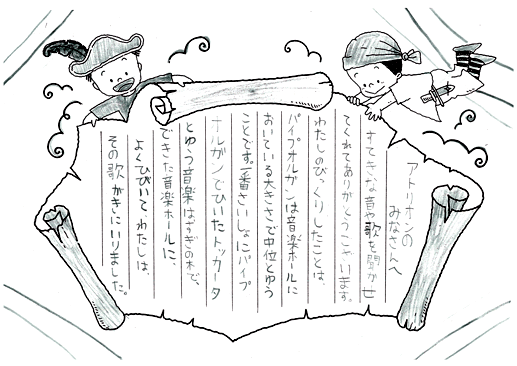 アトリオンの
みなさんへ
すてきな音や歌を聞かせ
てくれてありがとうございます。
わたしのびっくりしたことは、
パイプオルガンは音楽ホールに
おいている大きさで中位とゆう
ことです。一番さいしょにパイプ
オルガンでひいたトッカータ
とゆう音楽はすぎの木で、
できた音楽ホールに、
よくひびいてわたしは、
その歌がきにいりました。